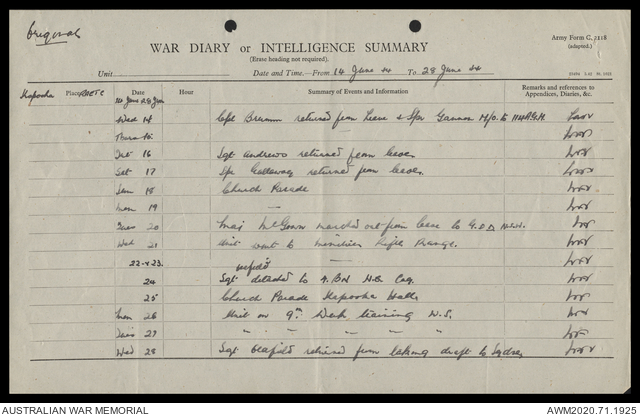 Original
Army Form C. 2118
(adapted.)
WAR DIARY or INTELLIGENCE SUMMARY
(Erase heading not required).
Unit
Date and Time.—From 14 June 44 To 28 June 44
Kapooka Place RAETC
Date Hour Summary of Events and Information Remarks and references to Appendices, Diaries, &c.
14 June 28 Jun
Wed 14 Cpl returned from Leave & Spr Gannon
Thurs 15 —
Fri 16 Sgt Andrews returned from leave.
Sat 17 Spr Galloway returned from leave.
Sun 18 Church Parade
Mon 19 —
Tues 20 Maj McGown marched out from here to G.D.D. N.S.W.
Wed 21 Unit went to Rifle Range.
22 & 23. —
24 Sgt Oldfield detached to Bn H.Q. Coy.
25 Church Parade Kapooka Hall.
Mon 26 Unit on 9th Week training W.S.
Tues 27 " " " " "
Wed 28 Sgt returned from taking draft to Sydney
AUSTRALIAN WAR MEMORIAL
AWM2020.71.1925